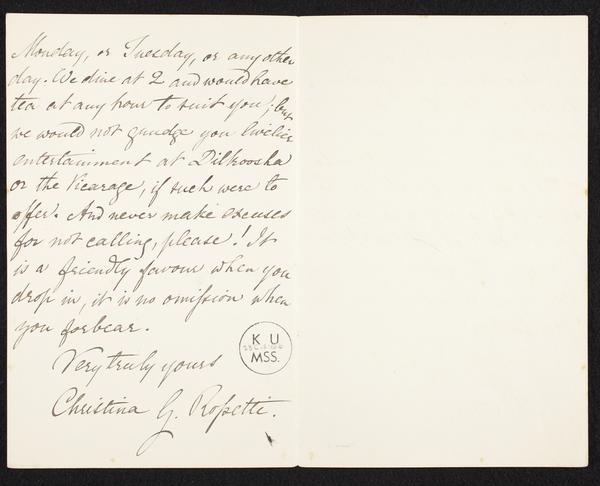 Monday, or Tuesday, or any other
day. We dine at 2 and would have
tea at any hour to suit you; but
we would not grudge you livelier
entertainment at Dilkoosha
or the Vicarage, if such were to
offer. And never make excuses
for not calling, please! It
is a friendly favour when you
drop in, it is no omission when
you forbear.
Very truly yours
Christina G. Rossetti.
K U
MSS.